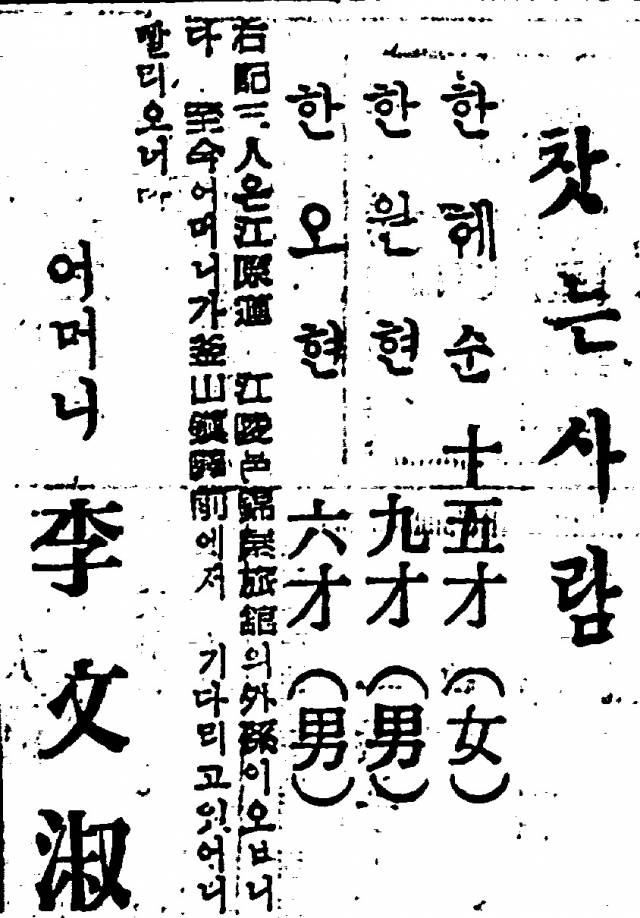 찾는사람
한혜순 十五才 (女)
한원현 九才 (男)
한오현 六才 (男)
右記三人은江原道 江陵邑錦泉旅館의外孫이오니
다 至今어머니가釜山鎭驛前에저 기다리고잇어니
빨리오너라
어머니 李文淑